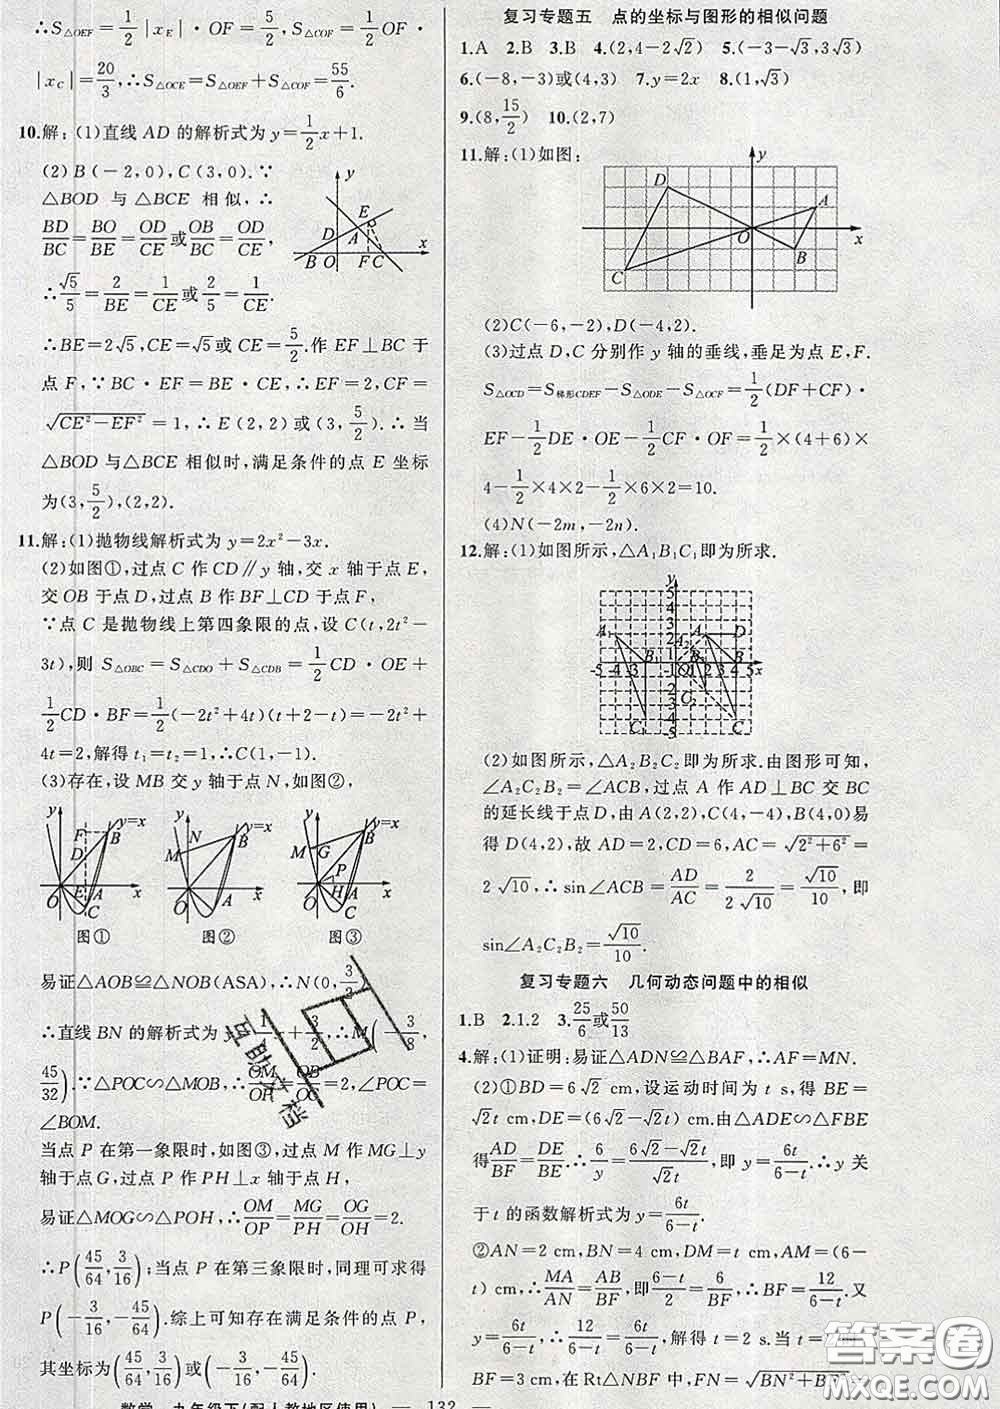 ∴S△OEF=1/2|xE|·OF=5/2,S△COF=1/2OF·
|xC|=20/3,∴S△OCE=S△OEF+S△COF=55/6.
10.解:(1)直线AD的解析式为y=1/2x+1.
(2)B(-2,0),C(3,0).∵
△BOD与△BCE相似,∴
BD/BC=BO/BE=OD/CE或OB/BC=OD/CE,
∴√5/5=2/BE=1/CE或2/5=1/CE
∴BE=2√5,CE=√5或CE=5/2.作EF⊥BC于
点F,∵BC·EF=BE·CE,∴EF=2,CF=
√(CE²-EF²)=1,∴E(2,2)或(3,5/2).∴当
△BOD与△BCE相似时,满足条件的点E坐标
为(3,5/2),(2,2).
11.解:(1)抛物线解析式为y=2x²-3x.
(2)如图①,过点C作CD∥y轴,交x轴于点E,
交OB于点D,过点B作BF⊥CD于点F,
∵点C是抛物线上第四象限的点,设C(t,2t²-
3t),则S△OBC=S△CDO+S△CDB=1/2CD·OE+
1/2CD·BF=1/2(-2t²+4t)(t+2-t)=-2t²+
4t=2,解得t₁=t₂=1,∴C(1,-1).
(3)存在,设MB交y轴于点N,如图②,
图① 图② 图③
易证△AOB≌△NOB(ASA),∴N(0,3/2)
∴直线BN的解析式为y=1/ +3/2,∴M(-3/8,
45/32).∵△POC∽△MOB,∴OM/OP=OB/OC=2,∠POC=
∠BOM.
当点P在第一象限时,如图③,过点M作MG⊥y
轴于点G,过点P作PH⊥x轴于点H,
易证△MOG∽△POH,∴OM/OP=MG/PH=OG/OH=2.
∴P(45/64,3/16);当点P在第三象限时,同理可求得
P(-3/16,-45/64).综上可知存在满足条件的点P,
其坐标为(45/64,3/16)或(-3/16,-45/64).
复习专题五 点的坐标与图形的相似问题
1.A 2.B 3.B 4.(2,4-2√2) 5.(-3-√3,3√3)
6.(-8,-3)或(4,3) 7.y=2x 8.(1,√3)
9.(8,15/2) 10.(2,7)
11.解:(1)如图:
(2)C(-6,-2),D(-4,2).
(3)过点D,C分别作y轴的垂线,垂足为点E,F.
S△OCD=S梯形CDEF-S△ODE-S△OCF=1/2(DF+CF)·
EF-1/2DE·OE-1/2CF·OF=1/2×(4+6)×
4-1/2×4×2-1/2×6×2=10.
(4)N(-2m,-2n).
12.解:(1)如图所示,△A₁B₁C₁即为所求.
(2)如图所示,△A₂B₂C₂即为所求.由图形可知,
∠A₂C₂B₂=∠ACB,过点A作AD⊥BC交BC
的延长线于点D,由A(2,2),C(4,-4),B(4,0)易
得D(4,2),故AD=2,CD=6,AC=√(2²+6²)=
2√10,∴sin∠ACB=AD/AC=2/2√10=√10/10,即
sin∠A₂C₂B₂=√10/10.
复习专题六 几何动态问题中的相似
1.B 2.1.2 3.25/6或50/13
4.解:(1)证明:易证△ADN≌△BAF,∴AF=MN.
(2)①BD=6√2 cm,设运动时间为t s,得BE=
√2t cm,DE=(6√2-√2t)cm.由△ADE∽△FBE
得AD/BF=DE/BE.∴6/y=(6√2-√2t)/√2t,即y=6t/(6-t).∴y关
于t的函数解析式为y=6t/(6-t).
②AN=2 cm,BN=4 cm,DM=t cm,AM=(6-
t)cm,∴MA/AN=AB/BF,即(6-t)/2=6/BF.∴BF=12/(6-t).又
y=6t/(6-t),∴12/(6-t)=6t/(6-t),解得t=2 s.当t=2时,
BF=3 cm,在Rt△NBF中,FN=√(BN²+BF²)=
数学 九年级下(配人教地区使用) — 132 —